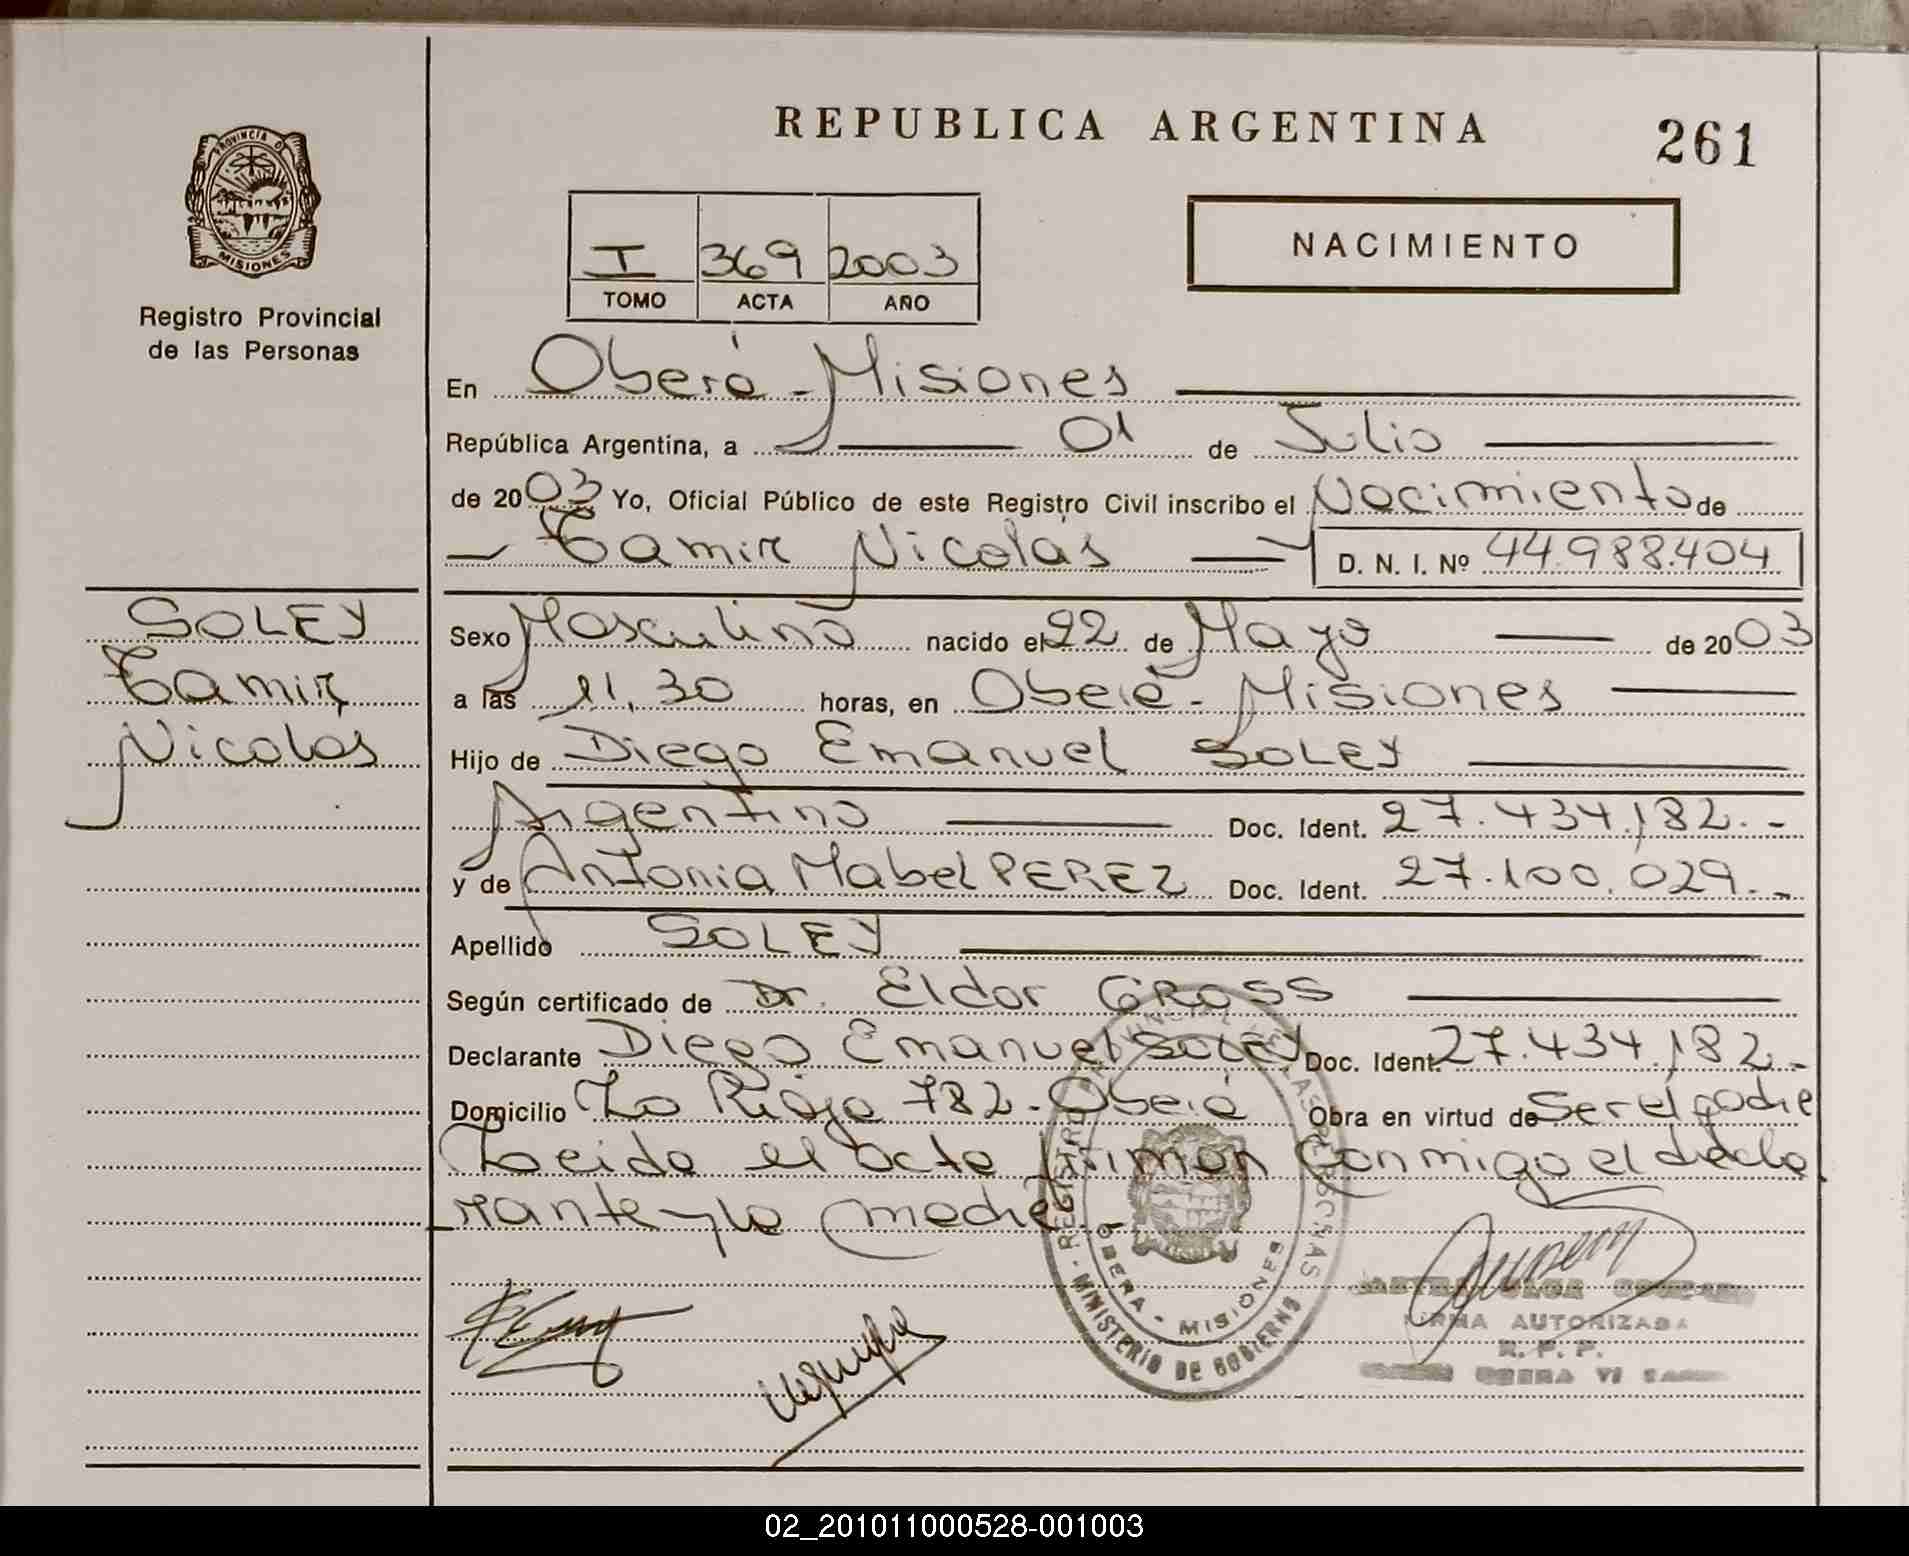 REPUBLICA ARGENTINA
261
PROVINCIA DE
MISIONES
Registro Provincial
de las Personas
I 369 2003
TOMO ACTA AÑO
NACIMIENTO
En Oberá - Misiones
República Argentina, a 01 de Julio
de 2003 Yo, Oficial Público de este Registro Civil inscribo el Nacimiento de
Tamir Nicolás D. N. I. Nº 44.988.404
SOLEY
Tamir
Nicolás
Sexo Masculino nacido el 22 de Mayo de 2003
a las 11,30 horas, en Oberá - Misiones
Hijo de Diego Emanuel SOLEY
Argentino Doc. Ident. 27.434.182.-
y de Antonia Mabel PEREZ Doc. Ident. 27.100.029.-
Apellido SOLEY
Según certificado de Dr. Eldor GROSS
Declarante Diego Emanuel SOLEY Doc. Ident. 27.434.182.-
Domicilio La Rioja 782 - Oberá Obra en virtud de Ser el padre
Leida el acta firman conmigo el decla
rante y la madre.-
REGISTRO PROVINCIAL DE LAS PERSONAS
OBERA - MISIONES
MINISTERIO DE GOBIERNO
FIRMA AUTORIZADA
R. P. P.
OBERA
02_201011000528-001003